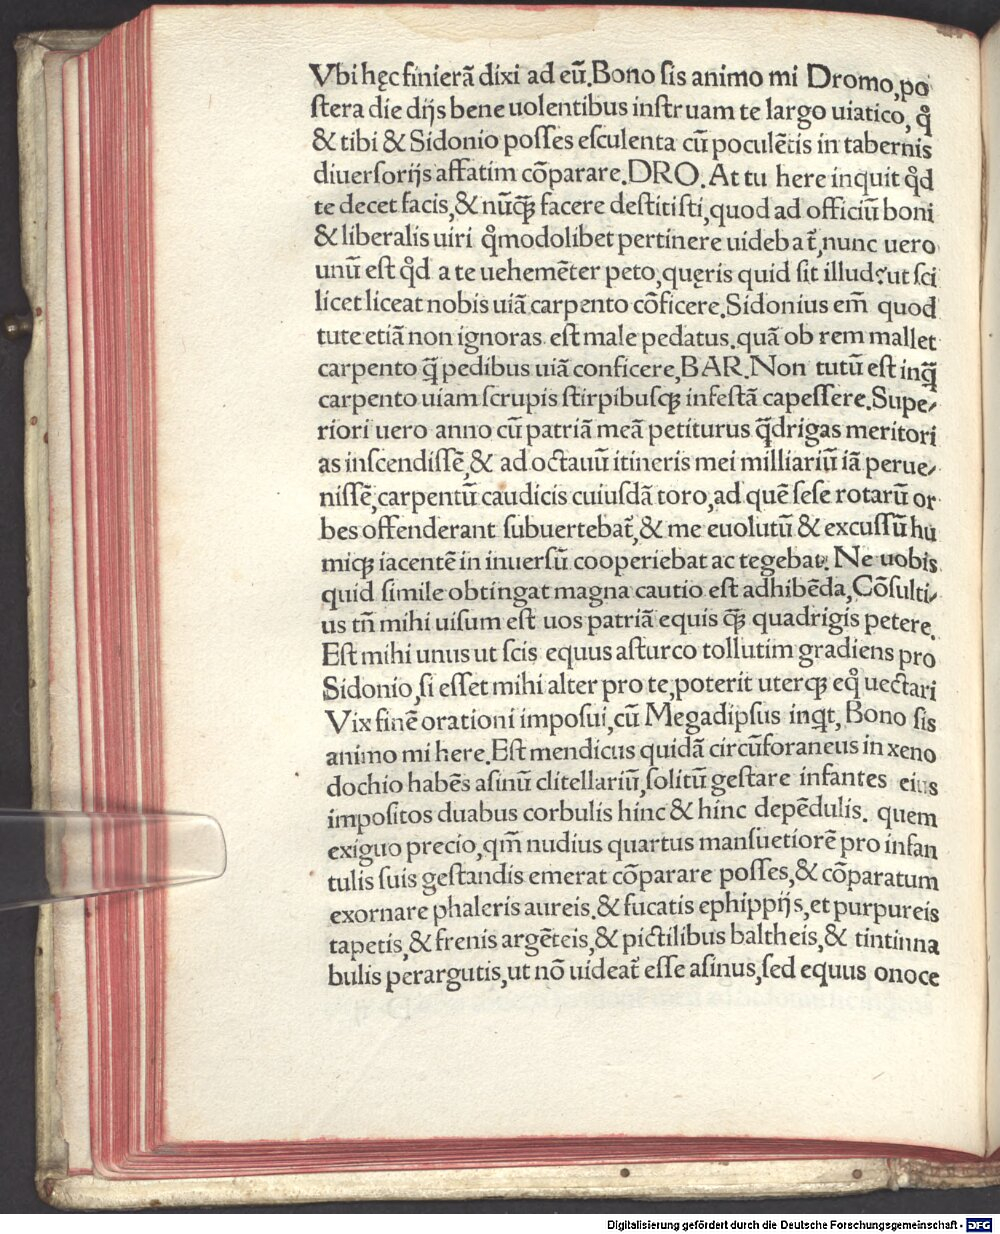 Vbi hęc finierã dixi ad eũ. Bono sis animo mi Dromo, po
stera die dijs bene uolentibus instruam te largo uiatico, ꝙ̊
& tibi & Sidonio posses esculenta cũ poculẽtis in tabernis
diuersorijs affatim cõparare. DRO. At tu here inquit qd̊
te decet facis, & nũq̃ꝫ facere destitisti, quod ad officiũ boni
& liberalis uiri q̊modolibet pertinere uidebat̃, nunc uero
unũ est qd̊ a te uehemẽter peto, quęris quid sit illud? ut sci
licet liceat nobis uiã carpento cõficere. Sidonius em̃ quod
tute etiã non ignoras est male pedatus. quã ob rem mallet
carpento q̃ pedibus uiã conficere, BAR. Non tutũ est inq̃
carpento uiam scrupis stirpibusqꝫ infestã capessere. Supe⸗
riori uero anno cũ patriã meã petiturus q̃drigas meritori
as inscendissẽ, & ad octauũ itineris mei milliariũ iã perue⸗
nissẽ, carpentũ caudicis cuiusdã toro, ad quẽ sese rotarũ or
bes offenderant subuertebat̃, & me euolutũ & excussũ hu
miqꝫ iacentẽ in inuersũ cooperiebat ac tegebat. Ne uobis
quid simile obtingat magna cautio est adhibẽda, Cõsulti⸗
us tñ mihi uisum est uos patriã equis q̃ꝫ quadrigis petere.
Est mihi unus ut scis equus asturco tollutim gradiens pro
Sidonio, si esset mihi alter pro te, poterit uterqꝫ eq̊ uectari
Vix finẽ orationi imposui, cũ Megadipsus inqt, Bono sis
animo mi here. Est mendicus quidã circũforaneus in xeno
dochio habẽs asinũ clitellariũ, solitũ gestare infantes eius
impositos duabus corbulis hinc & hinc depẽdulis. quem
exiguo precio, qm̃ nudius quartus mansuetiorẽ pro infan
tulis suis gestandis emerat cõparare posses, & cõparatum
exornare phaleris aureis. & fucatis ephippijs, et purpureis
tapetis, & frenis argẽteis, & pictilibus baltheis, & tintinna
bulis perargutis, ut nõ uideat̃ esse asinus, sed equus onoce
Digitalisierung gefördert durch die Deutsche Forschungsgemeinschaft - DFG